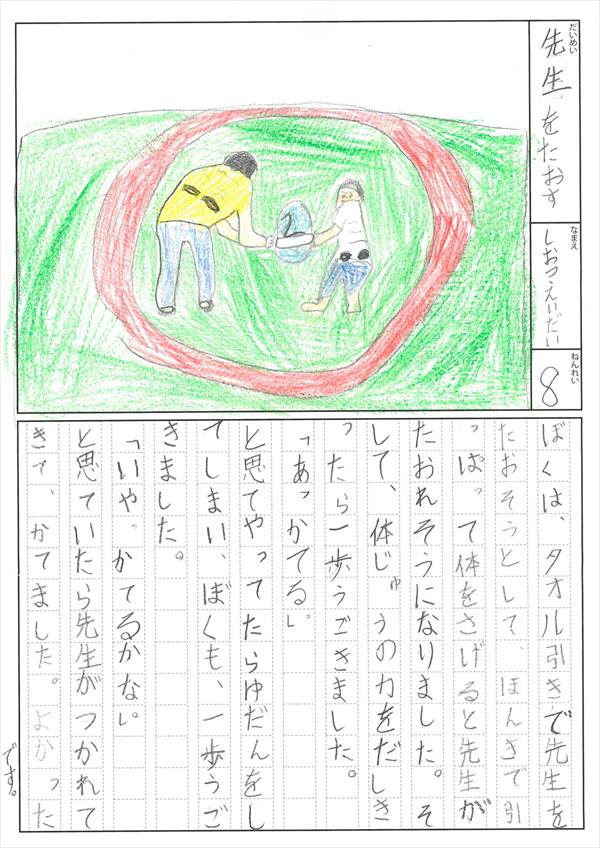 だいめい
先生をたおす
なまえ
しおつえいだい
ねんれい
8
2
ぼくは、タオル引きで先生を
たおそうとして、ほんきで引
っぱって体をさげると先生が
たおれそうになりました。そ
して、体じゅうの力をだしき
ったら一歩うごきました。
「あっかてる」。
と思てやってたらゆだんをし
てしまい、ぼくも、一歩うご
きました。
「いやっかてるかな」。
と思ていたら先生がつかれて
きて、かてました。よかった
です。